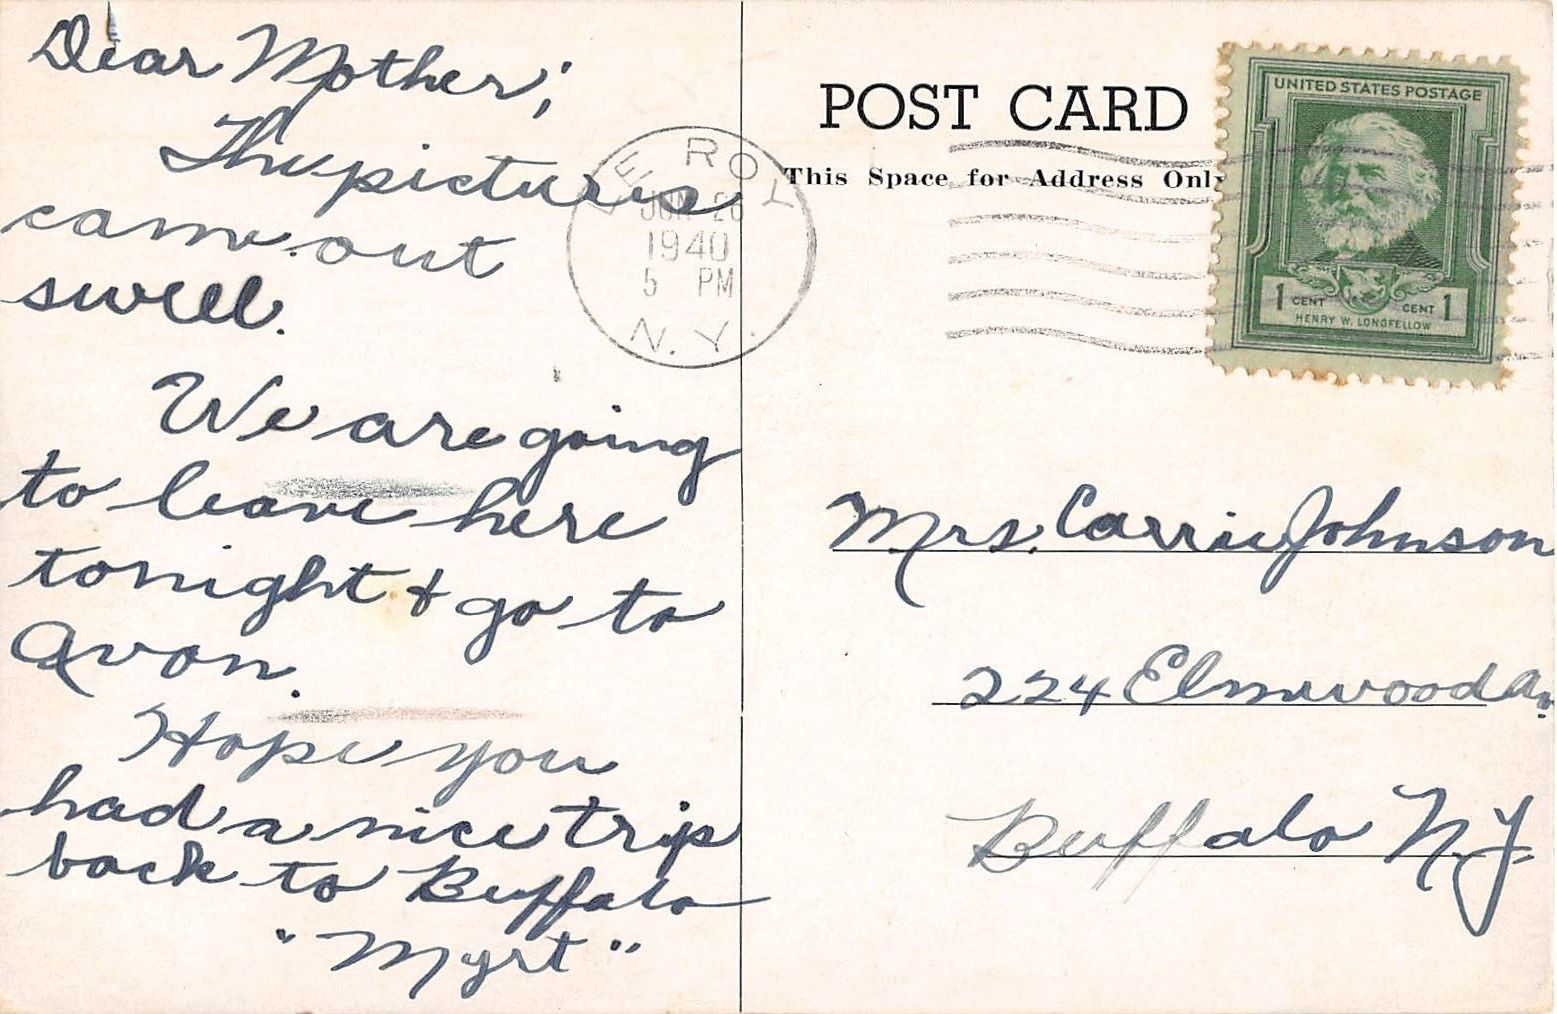 Dear Mother;
The pictures
came out
swell.
We are going
to leave here
tonight & go to
Avon.
Hope you
had a nice trip
back to Buffalo
"Myrt"
LE ROY
JUN 26
1940
5 PM
N.Y.
POST CARD
This Space for Address Only
UNITED STATES POSTAGE
1 CENT CENT 1
HENRY W. LONGFELLOW
Mrs. Carrie Johnson
224 Elmwood Av.
Buffalo N.Y.